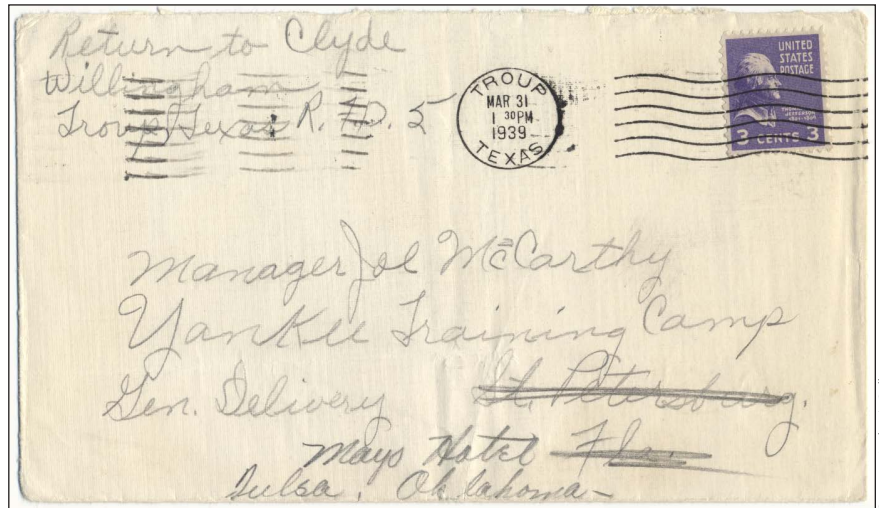 Return to Clyde
Willingham
Troup Texas R. F.D. 5
TROUP
MAR 31
1 30 PM
1939
TEXAS
UNITED
STATES
POSTAGE
3 CENTS 3
Manager Joe McCarthy
Yankee Training Camp
Gen. Delivery St. Petersburg.
Mayo Hotel Fla.
Tulsa, Oklahoma-